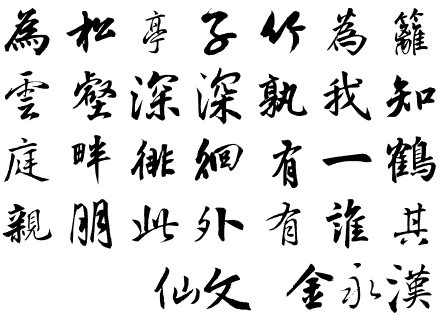 為松亭子竹為籬
雲壑深深孰我知
庭畔徘徊有一鶴
親朋此外有誰其
仙文 金永漢